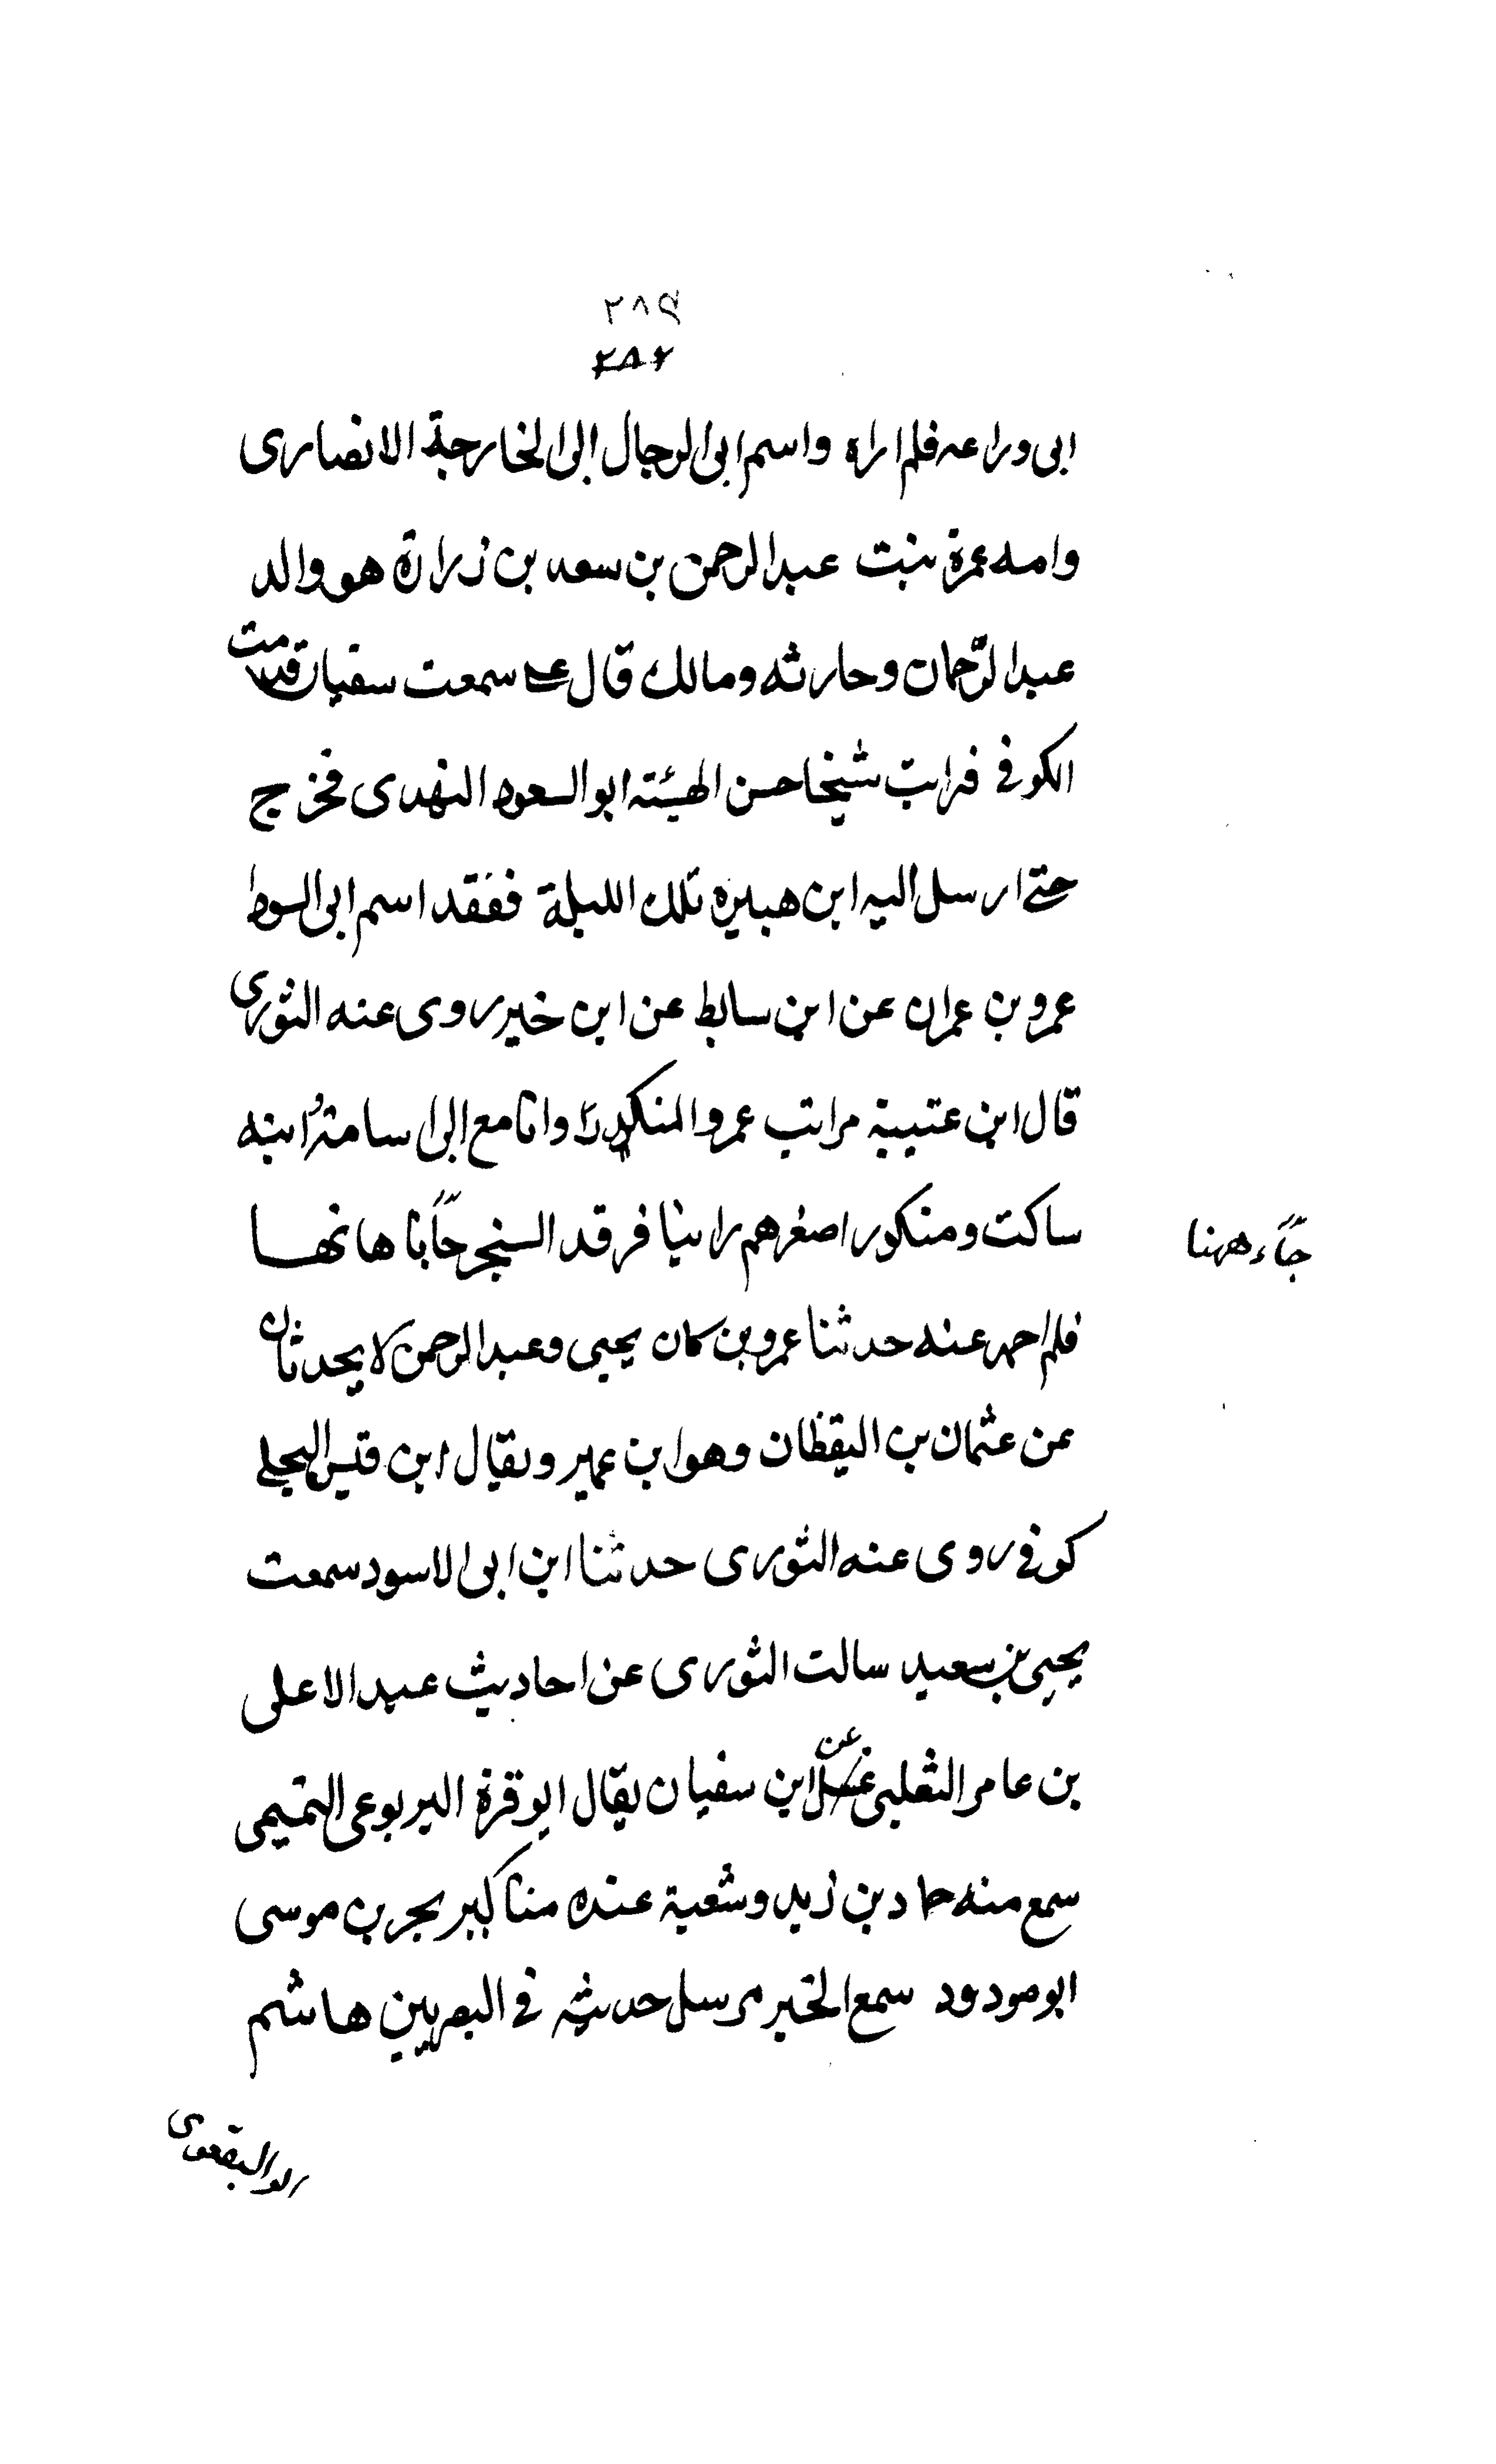 ٢٨٩
٢٥٢
ابى وداعه فلم اراه واسم ابى الرجال ابى الخارجة الانصارى
وامه عمرة بنت عبد الرحمن بن سعد بن زرارة هو والد
عبد الرحمان وحارثه ومالك قال سمعت سفيان قدمت
الكوفى فرايت شيخا حسن الهيئته ابو السعود النهدى فخرج
حتى ارسل اليه ابن هبيره تلك الليلة ففقد اسم ابى السود
عمرو بن عمران عن ابن سابط عن ابن خير روى عنه الثورى
قال ابن عتيبية رايت عمر والمنكدر وانا مع ابى اسامة ابنه
ساكت ومنكدر اصغرهم راينا فرقد السنجر جآنا هانها
جآء ههنا
فلم احمد عنه حدثنا عمرو بن كان يحيى وعبد الرحمن لا يحدثان
عن عثمان بن اليقظان وهو ابن عمير ويقال ابن قيس البجلى
كوفى روى عنه الثورى حدثنا ابن ابى الاسود سمعت
يحيى بن سعيد سالت الثورى عن احاديث عبد الاعلى
بن عامر الثعلبى عن ابن سفيان يقال ابو قرة اليربوعى التميمى
سمع منه حماد بن زيد وشعبة عنده مناكير بحر بن موسى
ابو مودود سمع الخبر مرسل حديثه فى البصريين هاشم